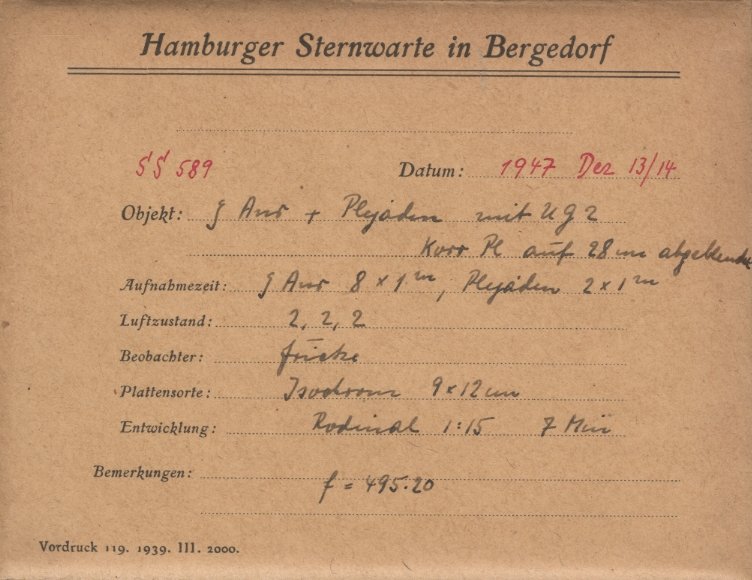 Hamburger Sternwarte in Bergedorf
SS 589
Datum: 1947 Dez 13/14
Objekt: ζ Aur + Plejaden mit UG2
Korr Pl auf 28 cm abgeblendet
Aufnahmezeit: ζ Aur 8 × 1ᵐ, Plejaden 2 × 1ᵐ
Luftzustand: 2, 2, 2
Beobachter:
Plattensorte: Isochrom 9×12 cm
Entwicklung: Rodinal 1:15 7 Min
Bemerkungen: f = 495.20
Vordruck 119. 1939. III. 2000.